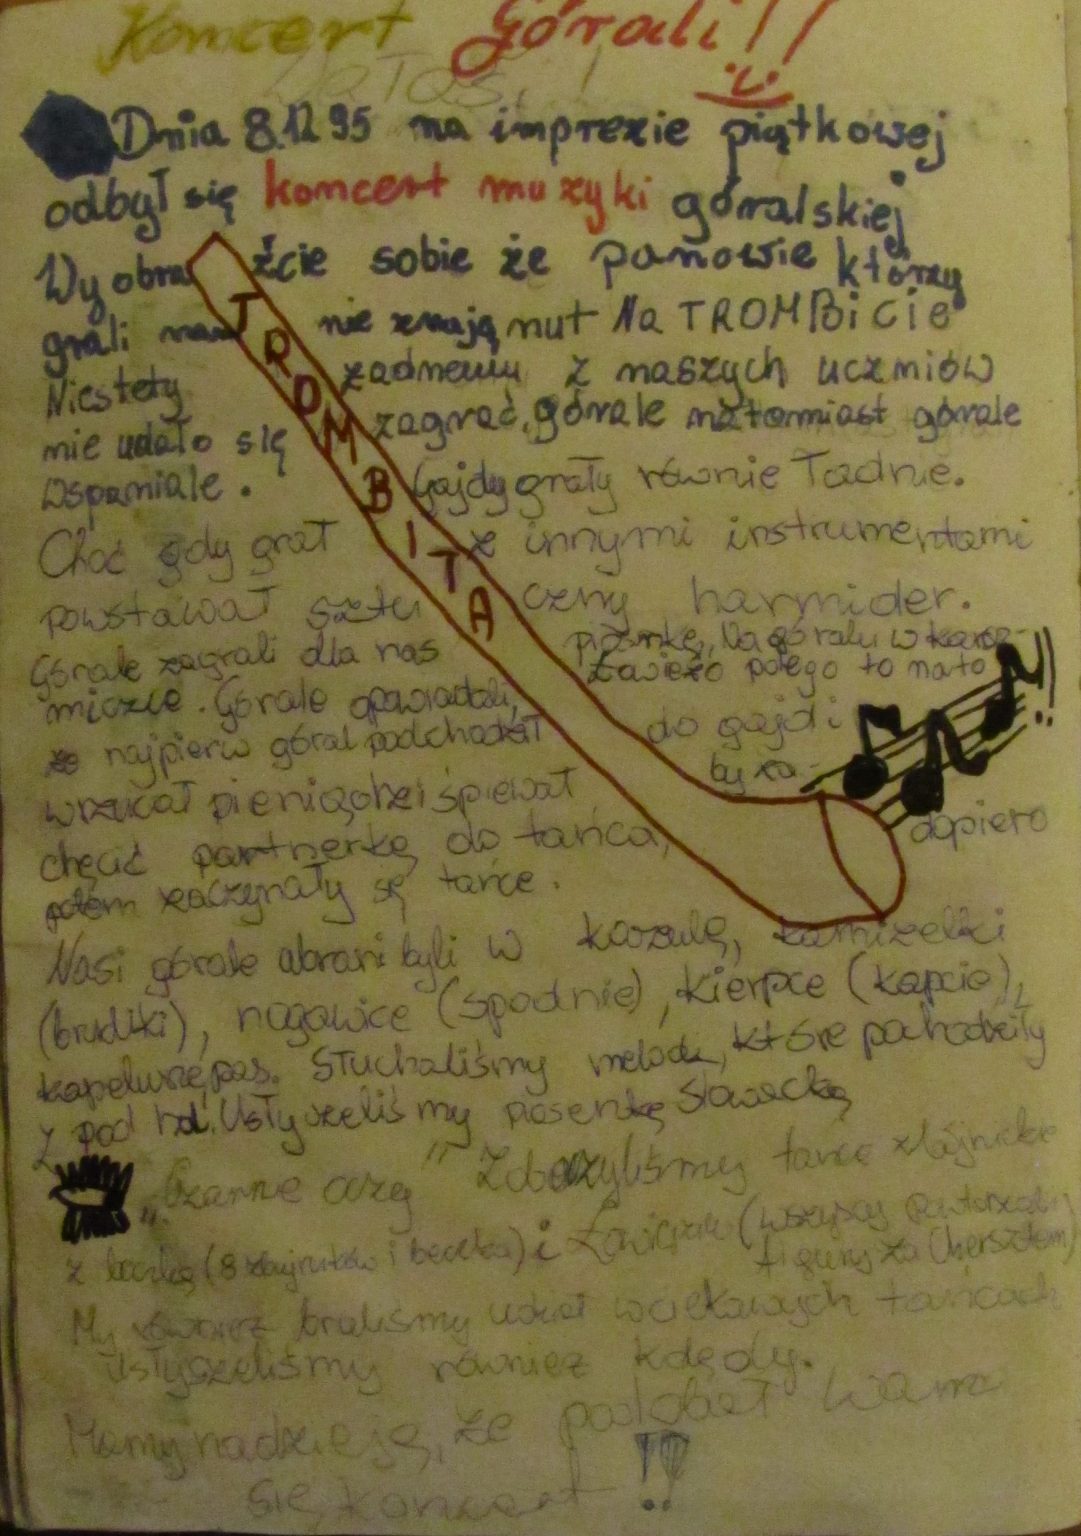 Koncert Górali!!
Dnia 8.12 95 na imprezie piątkowej
odbył się koncert muzyki góralskiej
Wyobraźcie sobie że panowie którzy
grali nam nie znają nut Na TROMBiCiE
Niestety żadnemu z naszych uczniów
nie udało się zagrać, górale natomiast górale
wspaniale. Gajdy grały równie ładnie.
Choć gdy grał z innymi instrumentami
powstawał sztuczny harmider.
Górale zagrali dla nas piosnkę, Na góralu w karcz-
miczce. Górale opowiadali, polego to na to
że najpierw góral podchodził do gajdi
wrzucał pieniądze i śpiewał by za-
chęcić partnerkę do tańca, dopiero
potem zaczynały sę tańce.
TROMBITA
Nasi górale ubrani byli w koszulę, kamizelki
(brucliki), nogawice (spodnie), kierpce (kapcie),
kapelusz, pas. Słuchaliśmy melodi, które pochodziły
z pod hal. Usłyszeliśmy piosenkę Słowacką
„Czarne oczy" Zobaczyliśmy tańce zbójnickie
z beczką (8 zbujników i beczka) i (wszyscy powtarzali
figury za Chersztem)
My również braliśmy udział w ciekawych tańcach
Usłyszeliśmy również kdędy.
Mamy nadzieję, że podobał wam
się koncert !!